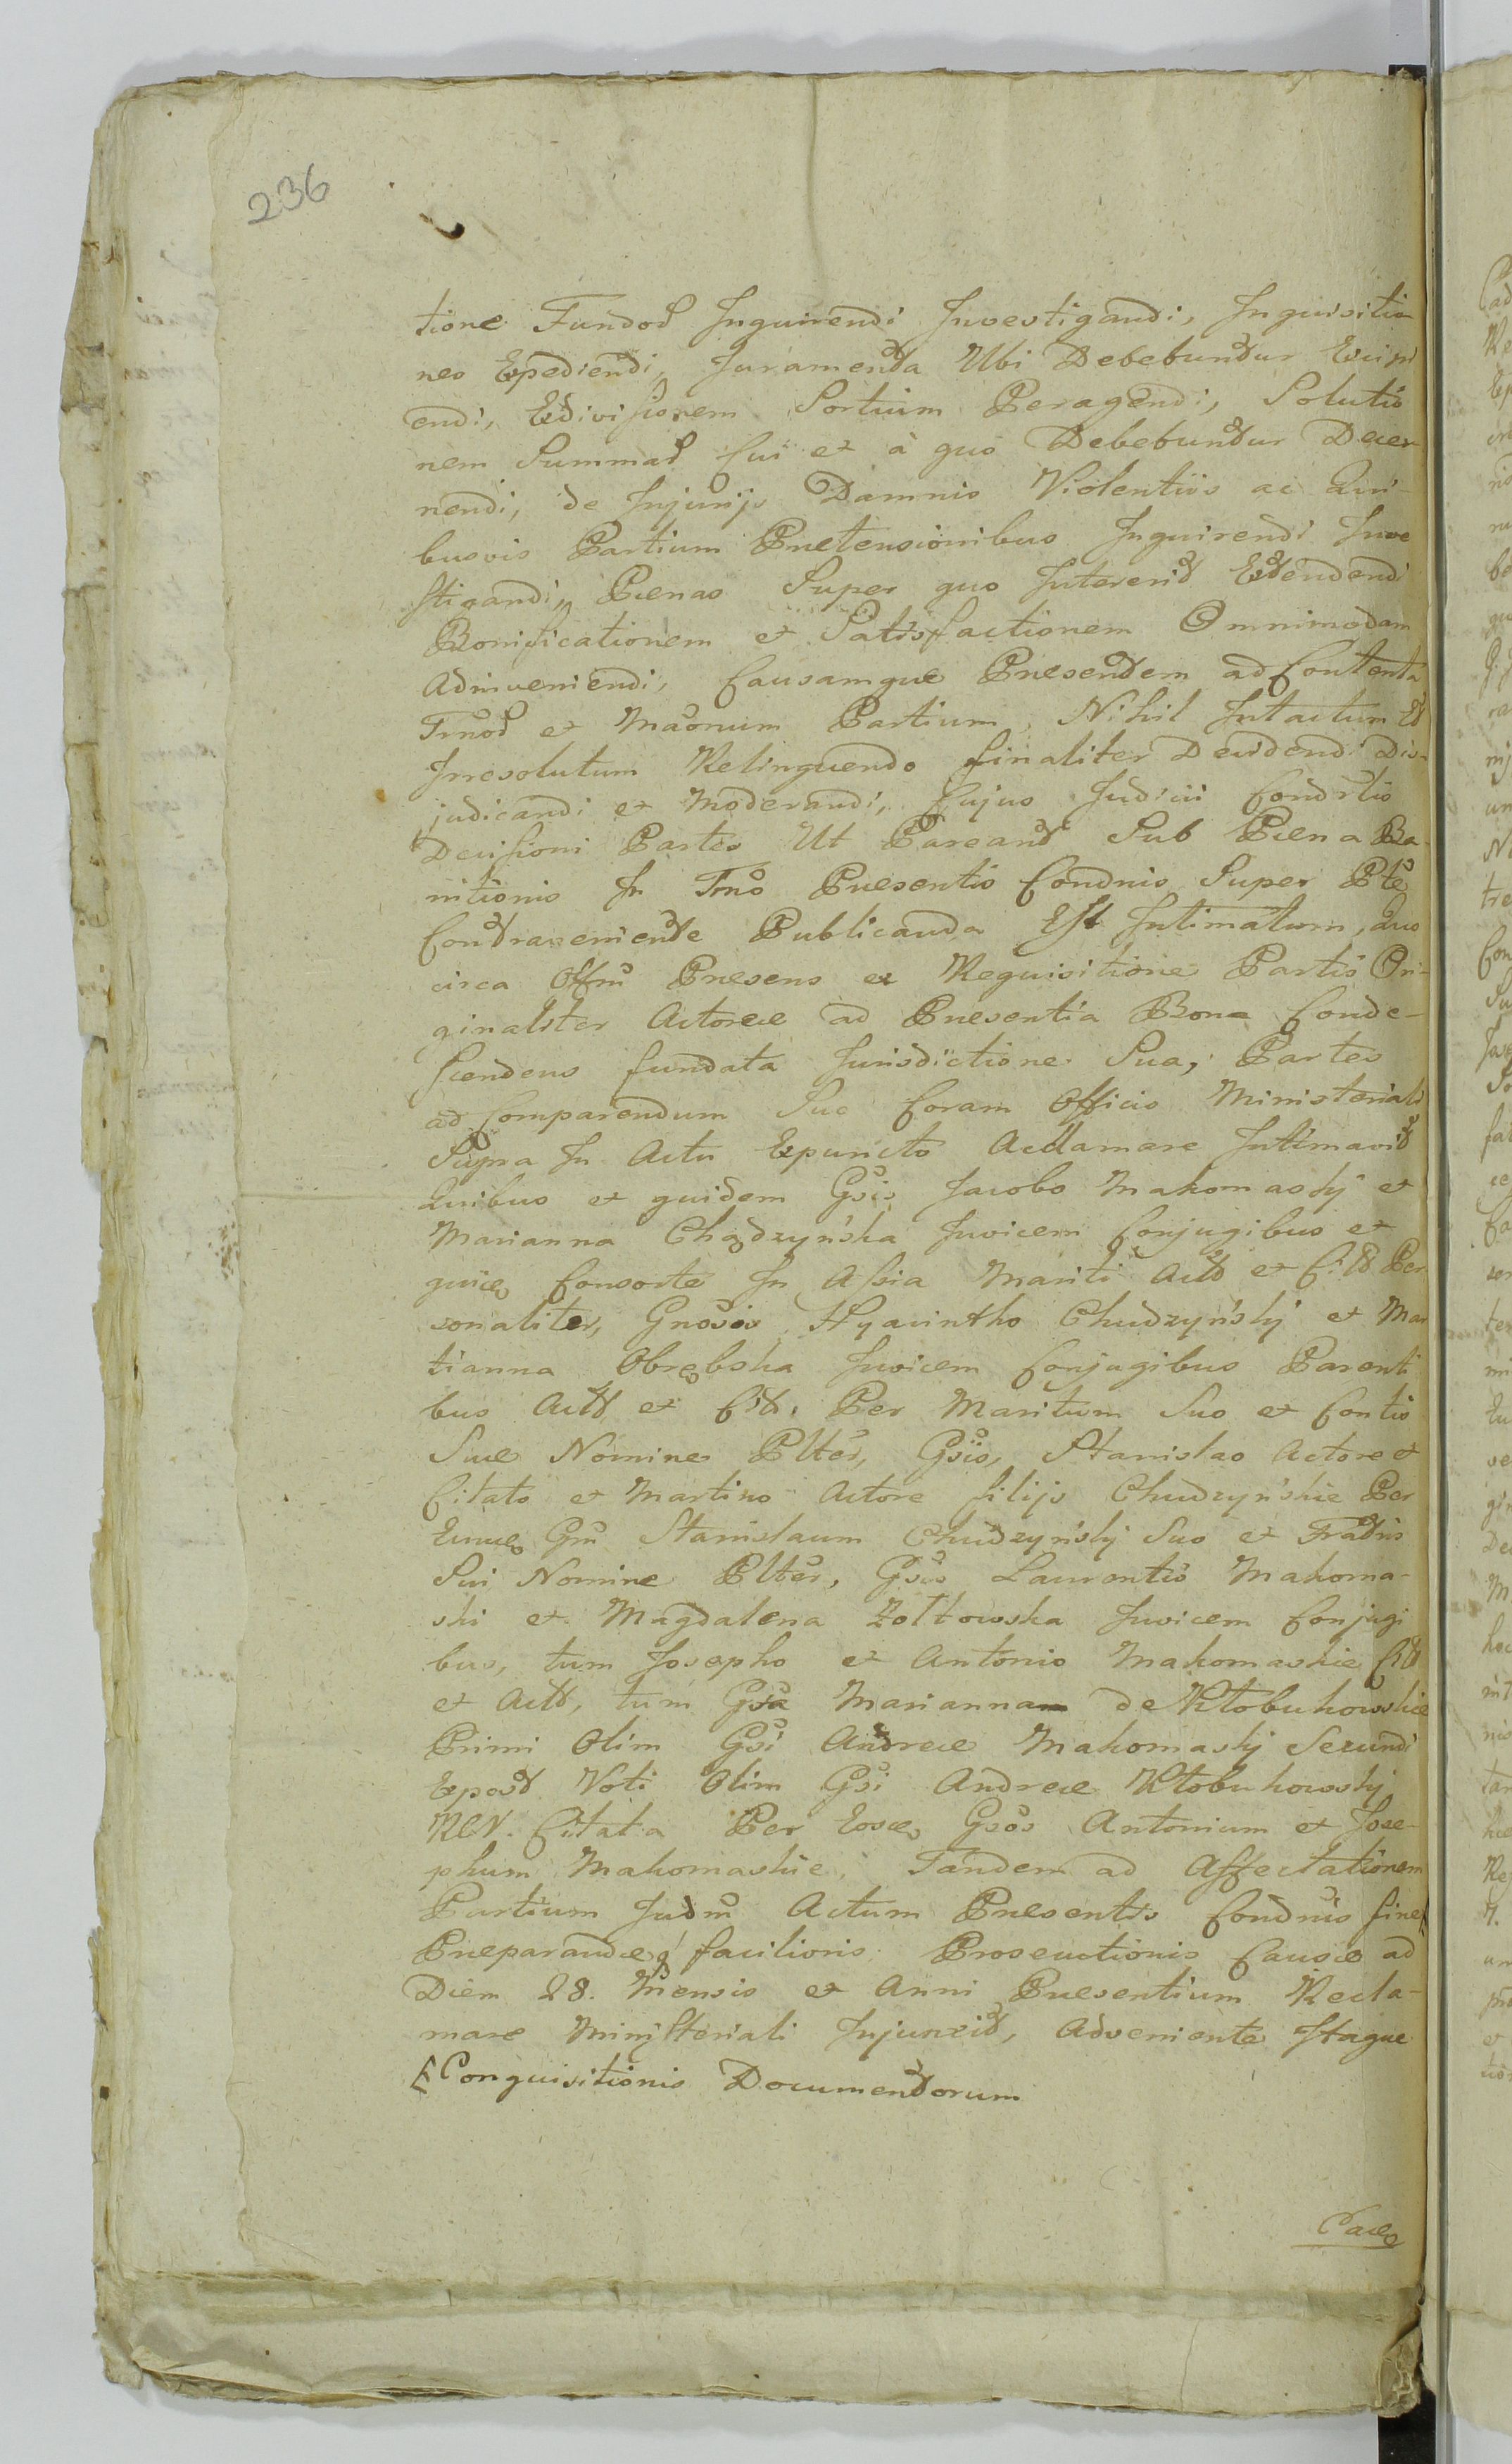 236
tione Fundor Inquirendi Investigandi, Inquisitio-
nes Expediendi, Juramenta Ubi Debebuntur Excipi
endi, Exdivisionem Sortium Peragendi, Solutio
nem Summar Cui et à quo Debebuntur Decer-
nendi, de Injurijs Damnis Violentiis ac Qui-
busvis Partium Prætensionibus Inquirendi Inve
stigandi, Pænas Super quo Intererit Extendendi
Bonificationem et Satisfactionem Omnimodam
Adinveniendi, Causamque Præsentem ad Contenta
Trnor et Mãonum Partium, Nihil Intactum Et
Irresolutum Relinquendo finaliter Decidendi Dis-
judicandi et Moderandi, Cujus Judicii Condrtis
Decisioni Partes Ut Pareant Sub Pæna Ba-
nitionis In Trno Præsentis Condnis Super Pte
Contraveniente Publicanda Est Intimatum, Quo
circa Offm Præsens ex Requisitione Partis Ori-
ginaliter Actoreæ ad Præsentia Bona Conde-
scendens fundata Jurisdictione Sua, Partes
ad Comparendum Suc Coram Officio Ministeriali
Supra In Actu Expuncto Acclamare Intimavit
Quibus et quidem Gsis Jacobo Makomasky et
Marianna Chądzyńska Invicem Conjugibus et
quiæ Consorte In Assia Mariti Actt et Citt Per
sonaliter, Gnosis Hyacintho Chudzyńsky et Mar
tianna Obrębska Invicem Conjugibus Parenti
bus Actt et Citt. Per Maritum Suo et Contis
Suæ Nomine Plter, Gsiis, Stanislao Actore et
Citato et Martino Actore filijs Chudzyńskie Per
Eunq Gm Stanislaum Chudzyńsky Suo et Fratris
Sui Nomine Plter, Gsis Laurentio Makoma-
ski et Magdalena Żołtowska Invicem Conjugi
bus, tum Josepho et Antonio Makomaskie Citt
et Actt, tum Gsa Marianna de Kłobukowskie
Primi Olim Gsi Andreæ Makomasky Secundi
Expost Voti Olim Gsi Andreæ Kłobukowsky
Rltt. Citata Per Eosq Gsos Antonium et Jose-
phum Makomaskie. Tandem ad Affectationem
Partium Judm Actum Præsentis Condnis fine
Præparandæq facilioris Prosecutionis Causæ ad
Diem 28. Mensis et Anni Præsentium Recla-
mare Ministeriali Injunxit, Adveniente Itaque
Conquisitionis Documentorum